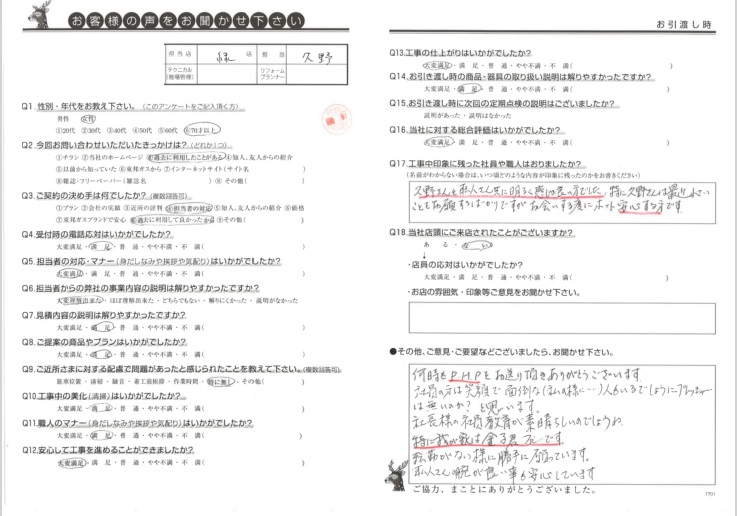 お客様の声をお聞かせ下さい
担当店 緑店 担当 久野
テクニカル(現場管理) リフォームプランナー
Q1.性別・年代をお教え下さい。(このアンケートをご記入頂く方)
男性 女性
①20代 ②30代 ③40代 ④50代 ⑤60代 ⑥70才以上
Q2.今回お問い合わせいただいたきっかけは?(どれか1つ)
①チラシ ②当社のホームページ ③過去に利用したことがある ④知人、友人からの紹介
⑤以前から知っていた ⑥東邦ガスから ⑦インターネットサイト(サイト名
⑧雑誌・フリーペーパー(雑誌名 ) ⑨その他( )
Q3.ご契約の決め手は何でしたか?(複数回答可)
①プラン ②会社の実績 ③近所の評判 ④担当者の対応 ⑤知人、友人からの紹介 ⑥価格
⑦東邦ガスブランドで安心 ⑧過去に利用して良かったから ⑨その他( )
Q4.受付時の電話応対はいかがでしたか?
大変満足・満 足・普 通・やや不満・不 満( )
Q5.担当者の対応・マナー(身だしなみや挨拶や気配り)はいかがでしたか?
大変満足・満 足・普 通・やや不満・不 満( )
Q6.担当者からの弊社の事業内容の説明は解りやすかったですか?
大変理解出来た・ほぼ理解出来た・どちらでもない・解りにくかった・説明がなかった
Q7.見積内容の説明は解りやすかったですか?
大変満足・満 足・普 通・やや不満・不 満( )
Q8.ご提案の商品やプランはいかがでしたか?
大変満足・満 足・普 通・やや不満・不 満( )
Q9.ご近所さまに対する配慮で問題があったと感じられたことを教えて下さい。(複数回答可)
駐車位置・清掃・騒音・着工前挨拶・作業時間・特に無し・その他( )
Q10.工事中の美化(清掃)はいかがでしたか?
大変満足・満 足・普 通・やや不満・不 満( )
Q11.職人のマナー(身だしなみや挨拶や気配り)はいかがでしたか?
大変満足・満 足・普 通・やや不満・不 満( )
Q12.安心して工事を進めることができましたか?
大変満足・満 足・普 通・やや不満・不 満( )
お引渡し時
Q13.工事の仕上がりはいかがでしたか?
大変満足・満 足・普 通・やや不満・不 満( )
Q14.お引き渡し時の商品・器具の取り扱い説明は解りやすかったですか?
大変満足・満 足・普 通・やや不満・不 満( )
Q15.お引き渡し時に次回の定期点検の説明はございましたか?
説明があった・説明はなかった
Q16.当社に対する総合評価はいかがでしたか?
大変満足・満 足・普 通・やや不満・不 満( )
Q17.工事中印象に残った社員や職人はおりましたか?
(名前がわからない場合は、いつ頃どのような内容が印象に残ったのかをお書きください)
久野さんも職人さん共に明るく感じの良い方でした。特に久野さんは
ことをお願いするばかりですがお会いする度にホット安心する方です。
Q18.当社店頭にご来店されたことがございますか?
ある・ない
・店員の応対はいかがでしたか?
大変満足・満 足・普 通・やや不満・不 満( )
・お店の雰囲気・印象等ご意見をお聞かせ下さい。
●その他、ご意見・ご要望などございましたら、お聞かせ下さい。
何時もP.H.Pをお送り頂きありがとうございます。
社員の方は笑顔で面倒な(私の様に…)人もいるでしょうに
は無いのか?と思います。
社長様の社員教育が素晴らしいのでしょうね
特に我が家は金子君
転勤がない様に勝手に願っています。
職人さんの腕が良い事も安心しています
ご協力、まことにありがとうございました。
1701